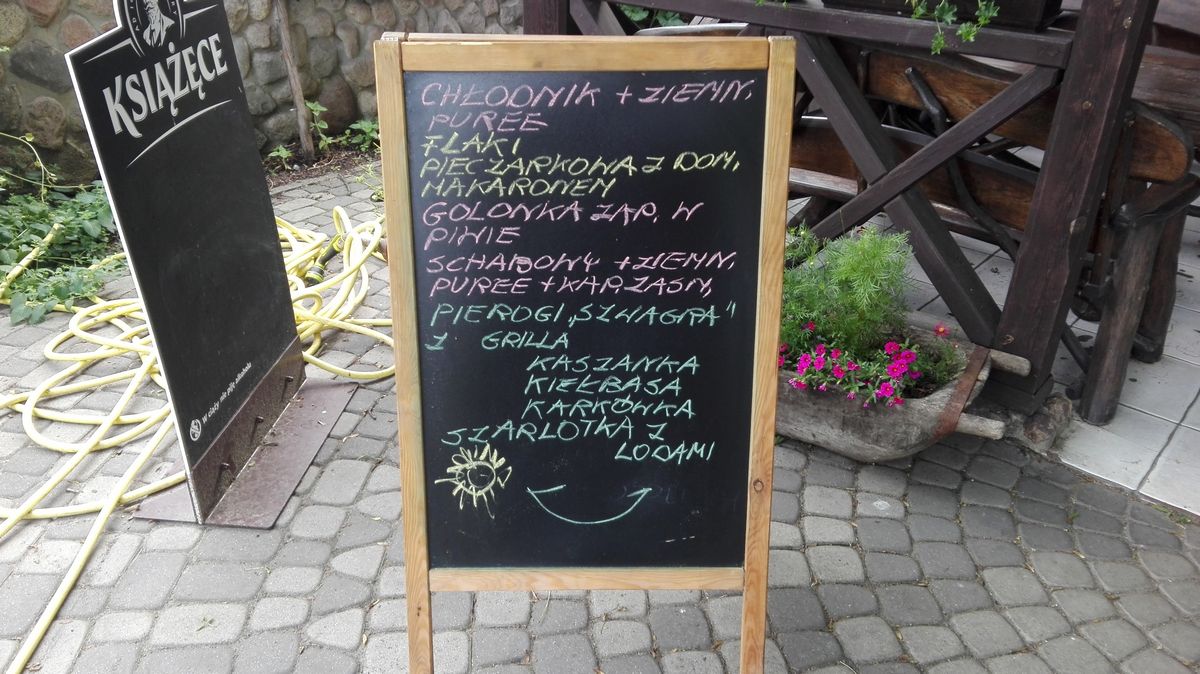 KSIĄŻĘCE
W ciąży nie piję alkoholu
CHŁODNIK + ZIEMN,
PUREE
FLAKI
PIECZARKOWA Z DOM,
MAKARONEM
GOLONKA ZAP. W
PIWIE
SCHABOWY + ZIEMN,
PUREE + KAP. ZASM,
PIEROGI „SZWAGRA"
Z GRILLA
KASZANKA
KIEŁBASA
KARKÓWKA
SZARLOTKA Z
LODAMI